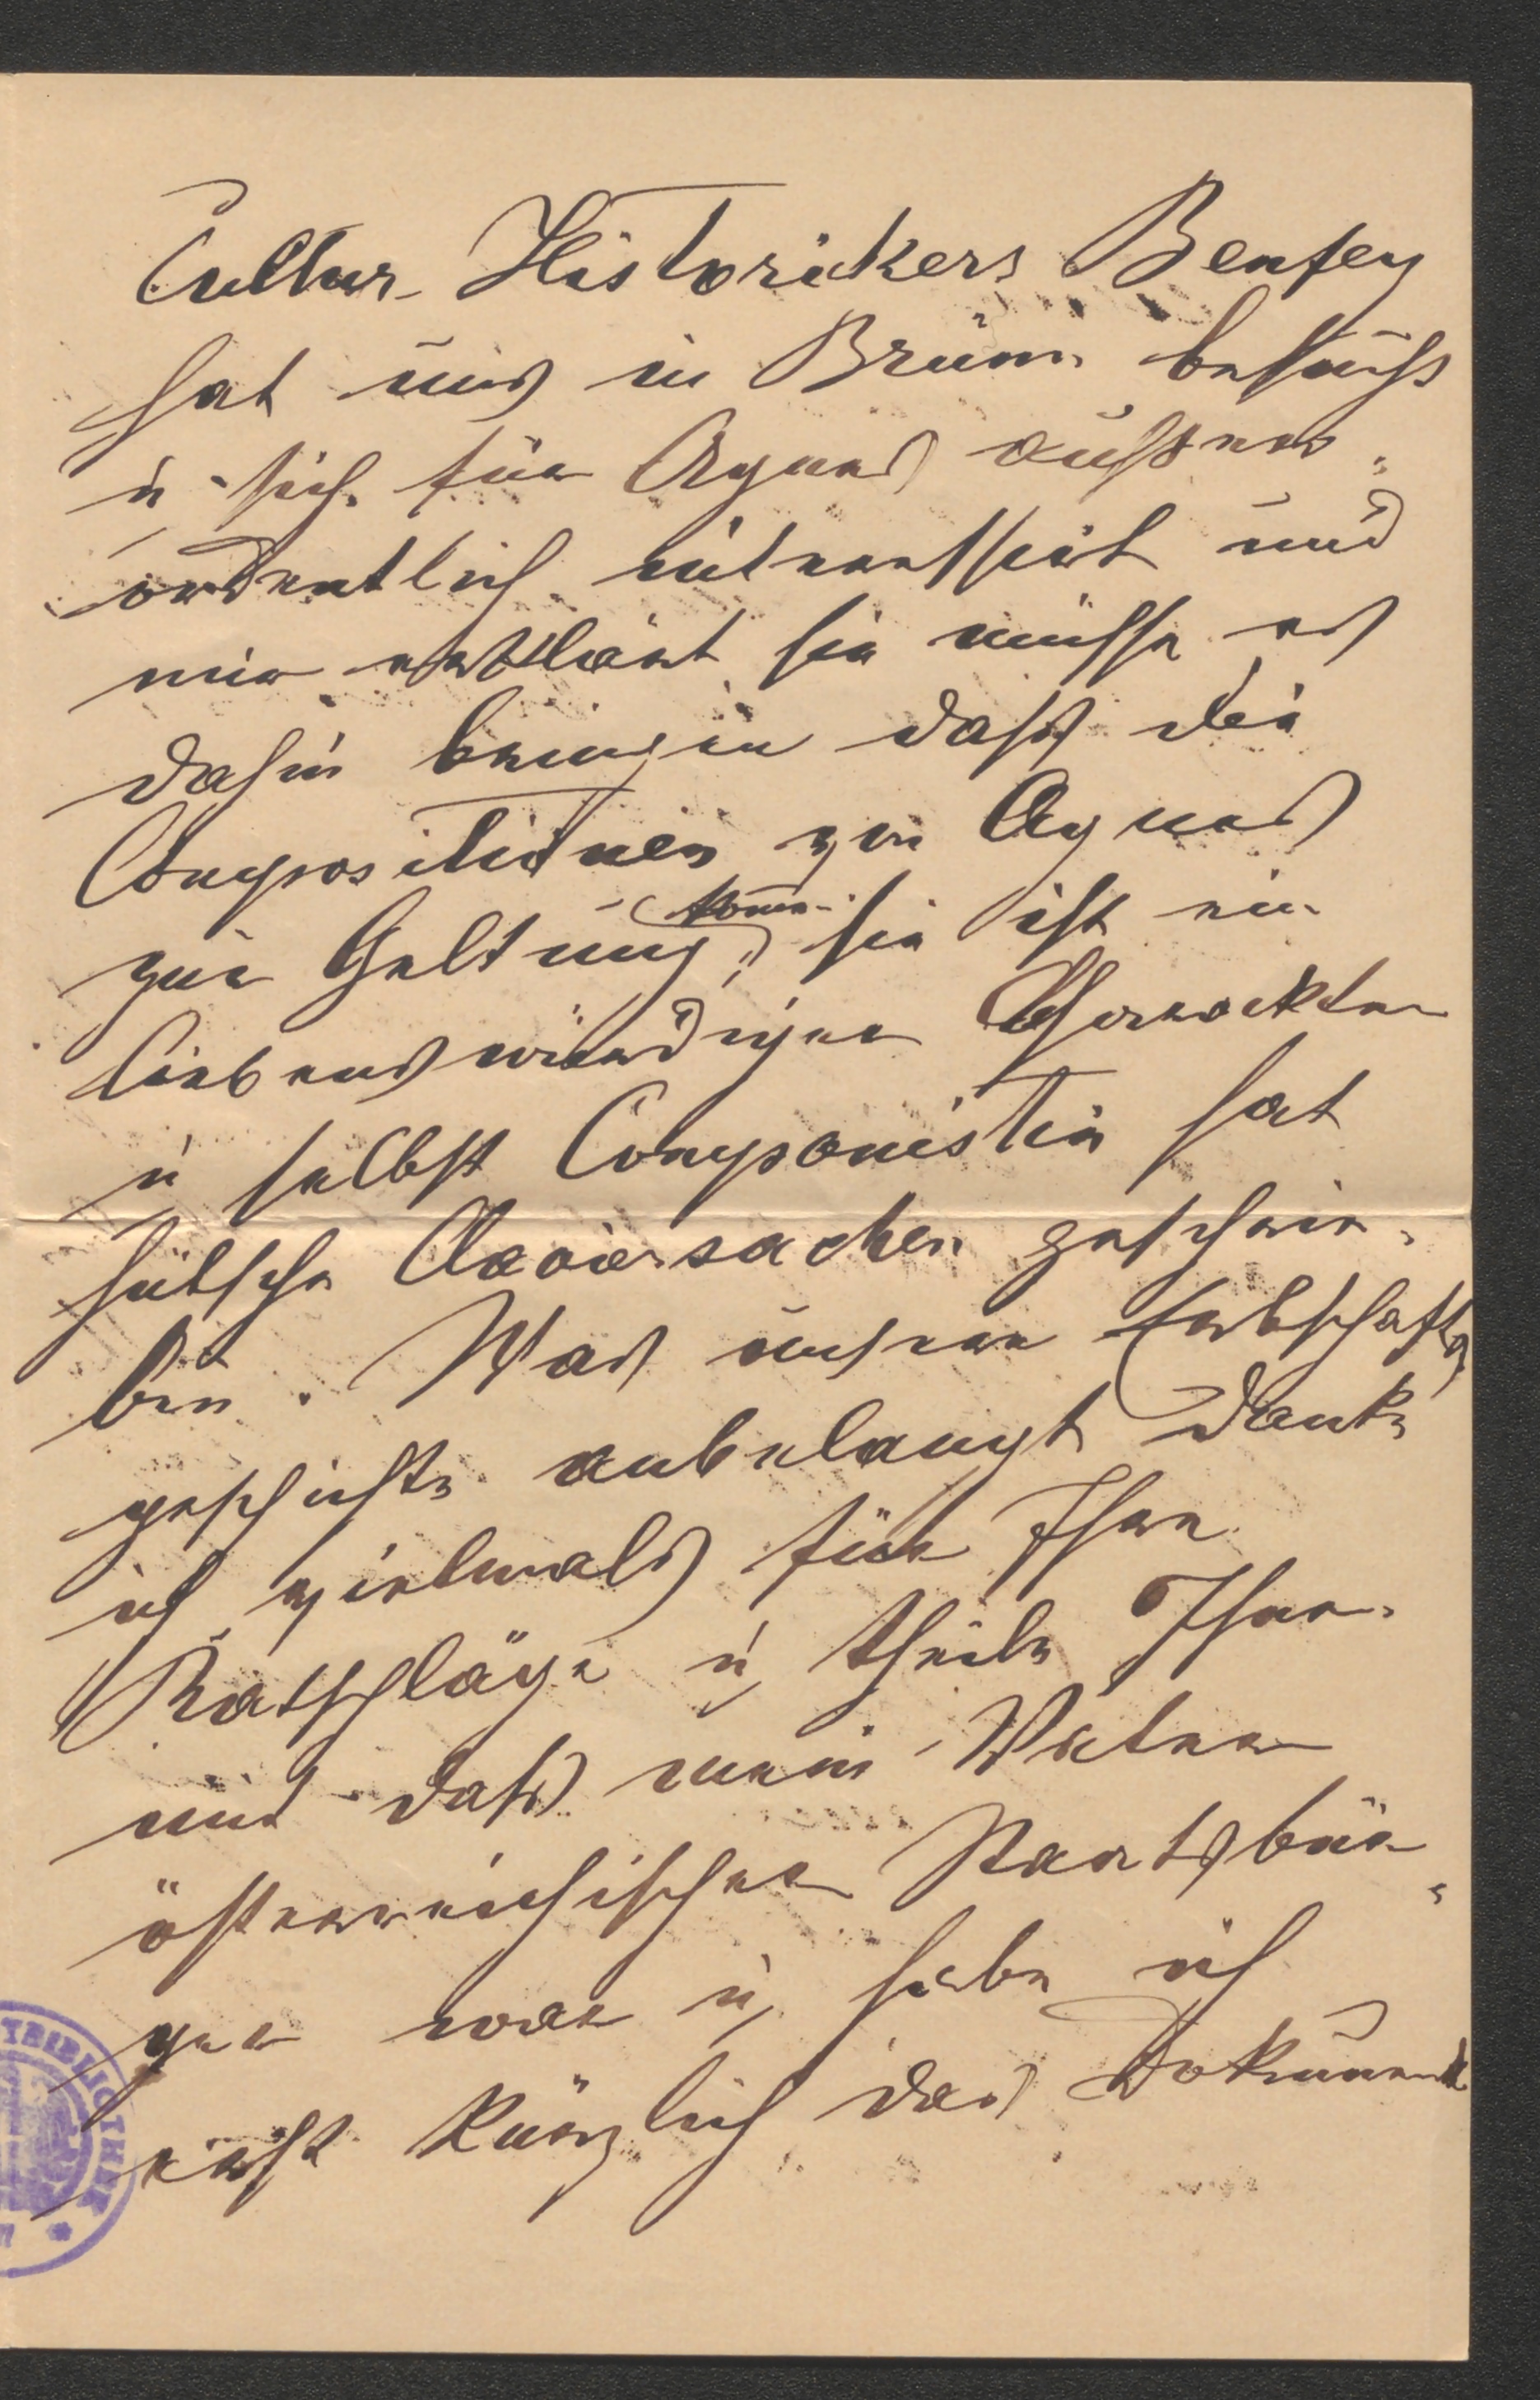 Cultur-Historickers Benfey
hat uns in Brünn besucht
u sich für Agnes außer¬
ordentlich interessirt und
mir erklärt sie müsse es
dahin bringen daß die
Compositionen von Agnes
zur Geltung kom̄e, sie ist ein
liebenswürdiger Charackter
u selbst Componistin hat
hübsche Claviersachen geschrie¬
ben. Was unsere Erbschafts
geschichte anbelangt danke
ich vielmals für Ihre
Ratschläge u theile Ihnen
mit daß mein Vater
österreichischer Staatsbür¬
ger war u habe ich
erst kürzlich das Dokument
TBIBLIOTHEK